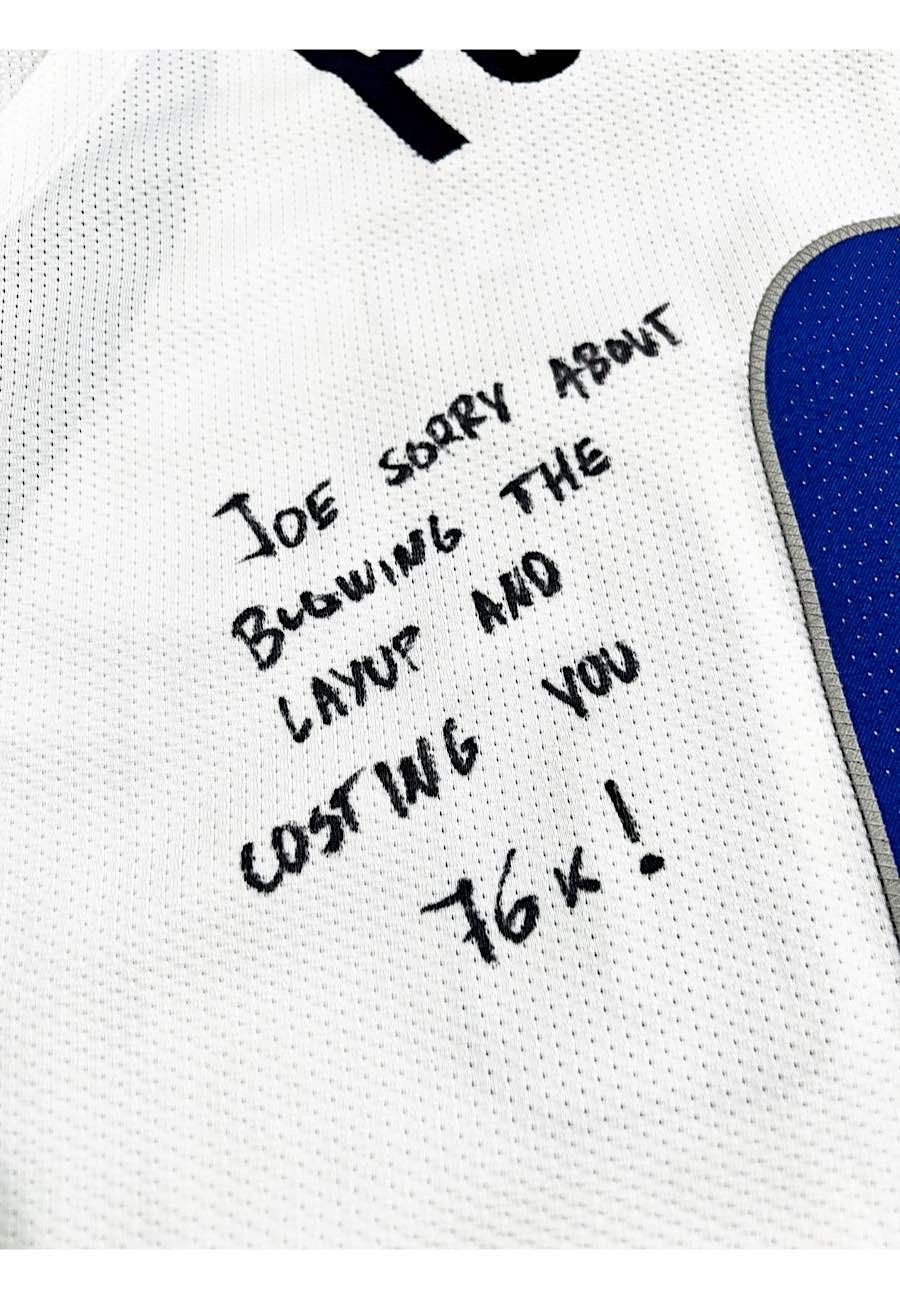 JOE SORRY ABOUT
BLOWING THE
LAYUP AND
COSTING YOU
76K!